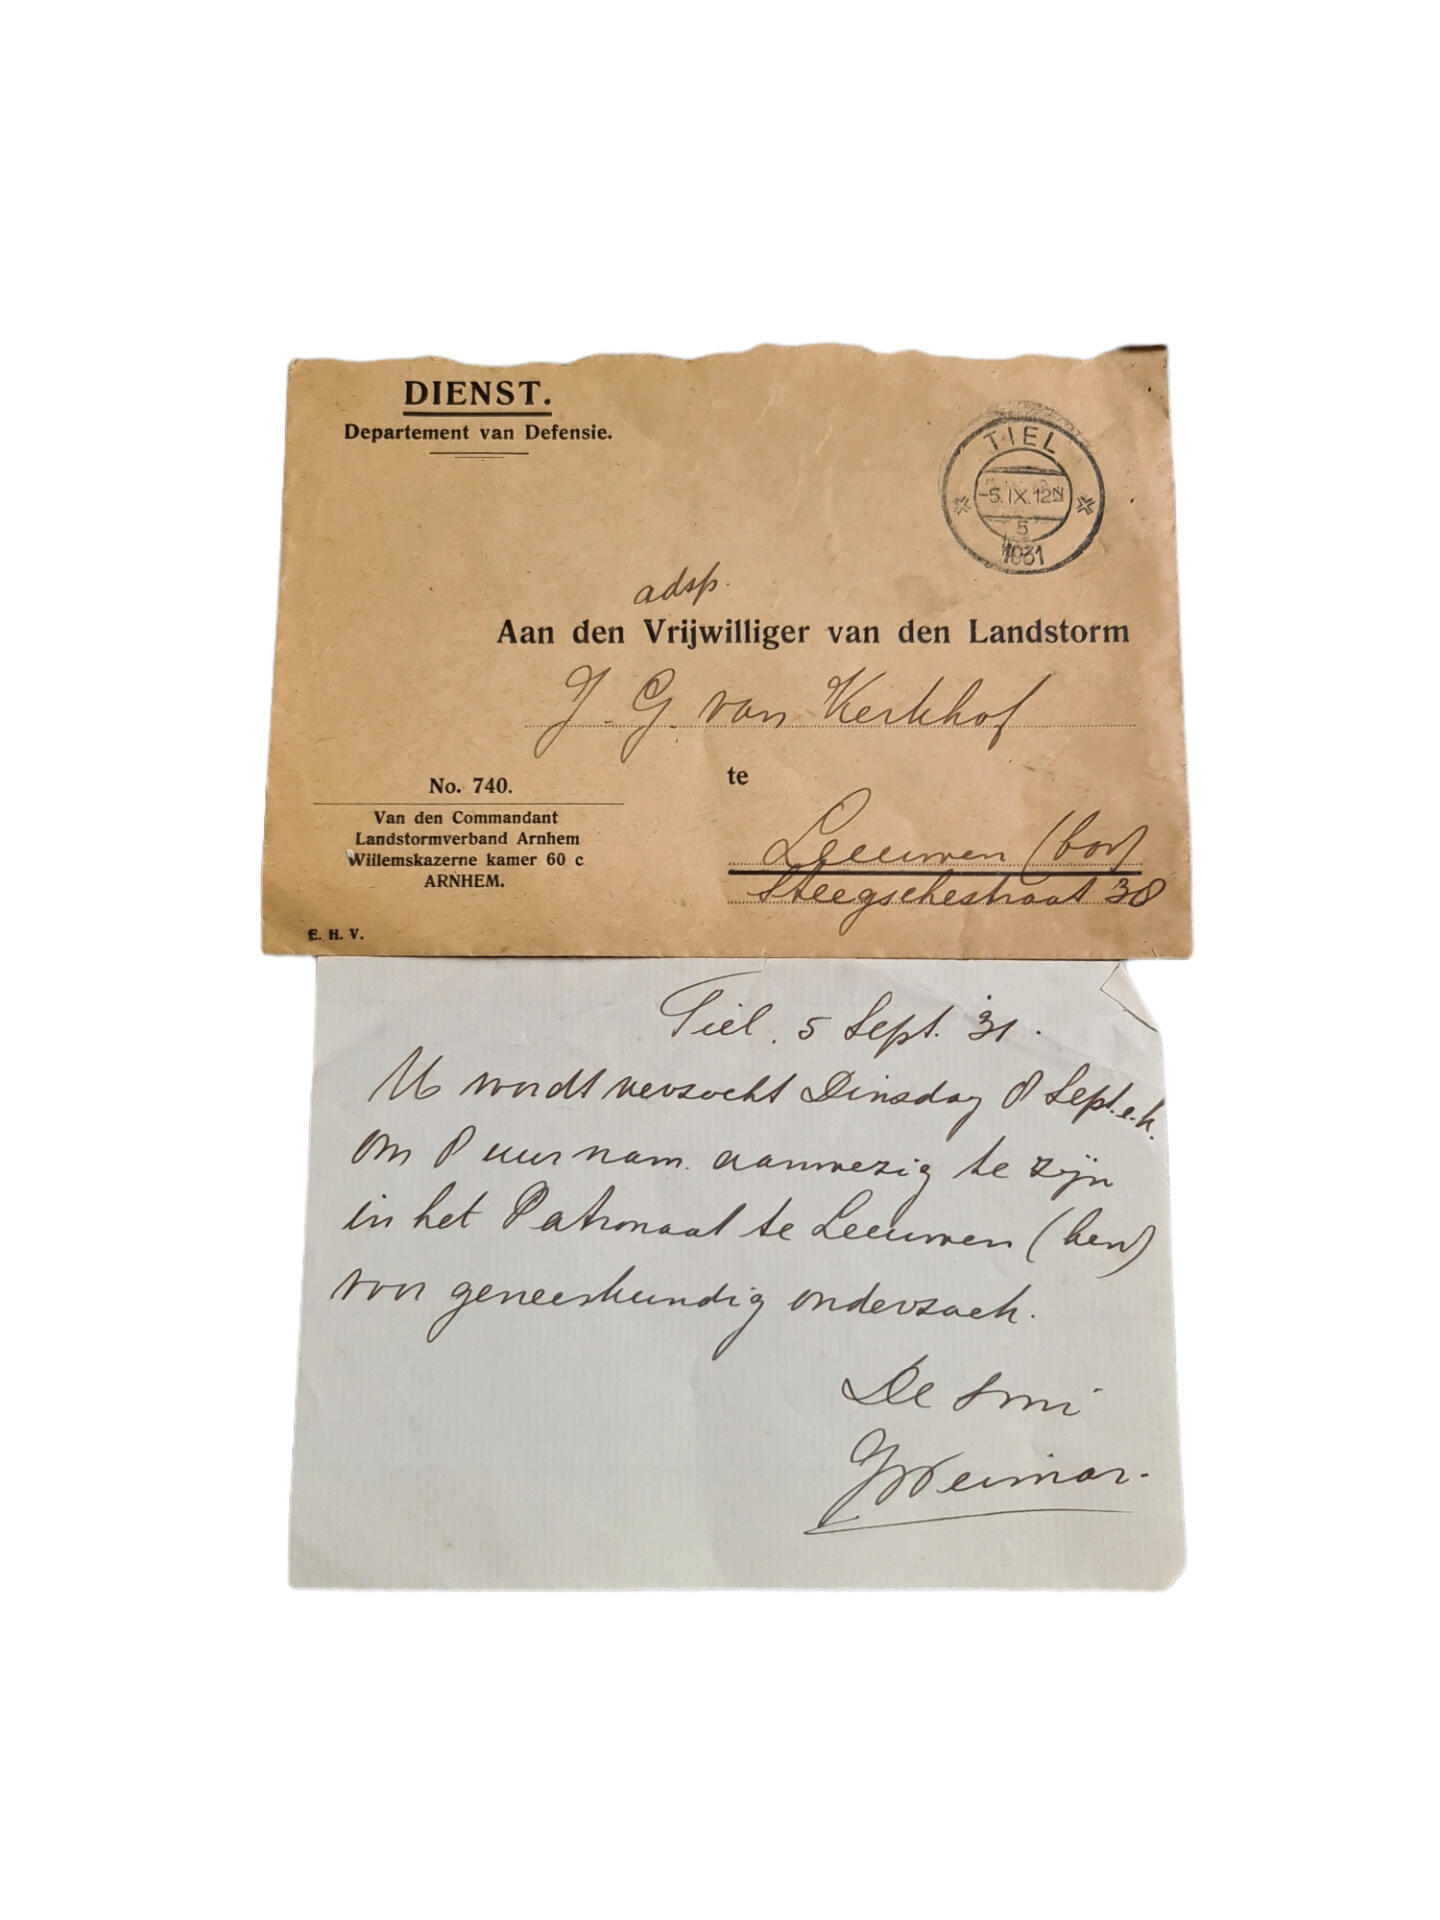 DIENST.
Departement van Defensie.
TIEL
-5.IX.12N
5
1931
adsp.
Aan den Vrijwilliger van den Landstorm
J. G. van Kerkhof
te
No. 740.
Van den Commandant
Landstormverband Arnhem
Willemskazerne kamer 60 c
ARNHEM.
Leeuwen (bov)
Steegschestraat 38
E. H. V.
Tiel, 5 Sept. '31.
U wordt verzocht Dinsdag 8 Sept. e.k.
om 8 uur nam. aanwezig te zijn
in het Patronaat te Leeuwen (ben)
voor geneeskundig onderzoek.
De smi
JWeimar.